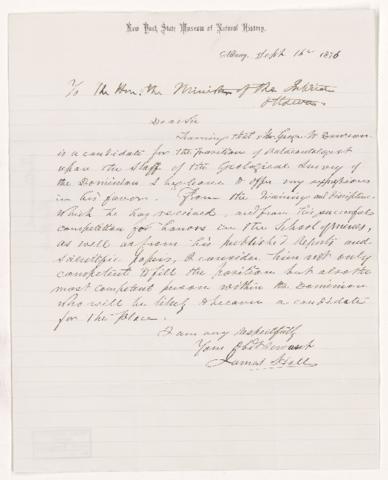 New York State Museum of Natural History.
Albany, Sept 12th 1876
To the Hon. the Minister of the Interior
Ottawa
Dear Sir
Learning that Mr George M. Dawson
is a candidate for the position of Palaeontologist
upon the Staff of the Geological Survey of
the Dominion I beg leave to offer my expressions
in his favor. From the training and discipline
which he has received, and from his successful
competition for honors in the School of mines,
as well as from his published reports and
scientific papers, I consider him not only
competent to fill the position but also the
most competent person within the Dominion
who will be likely to become a candidate
for the place.
I am very respectfully
Your Obt Servant
James Hall